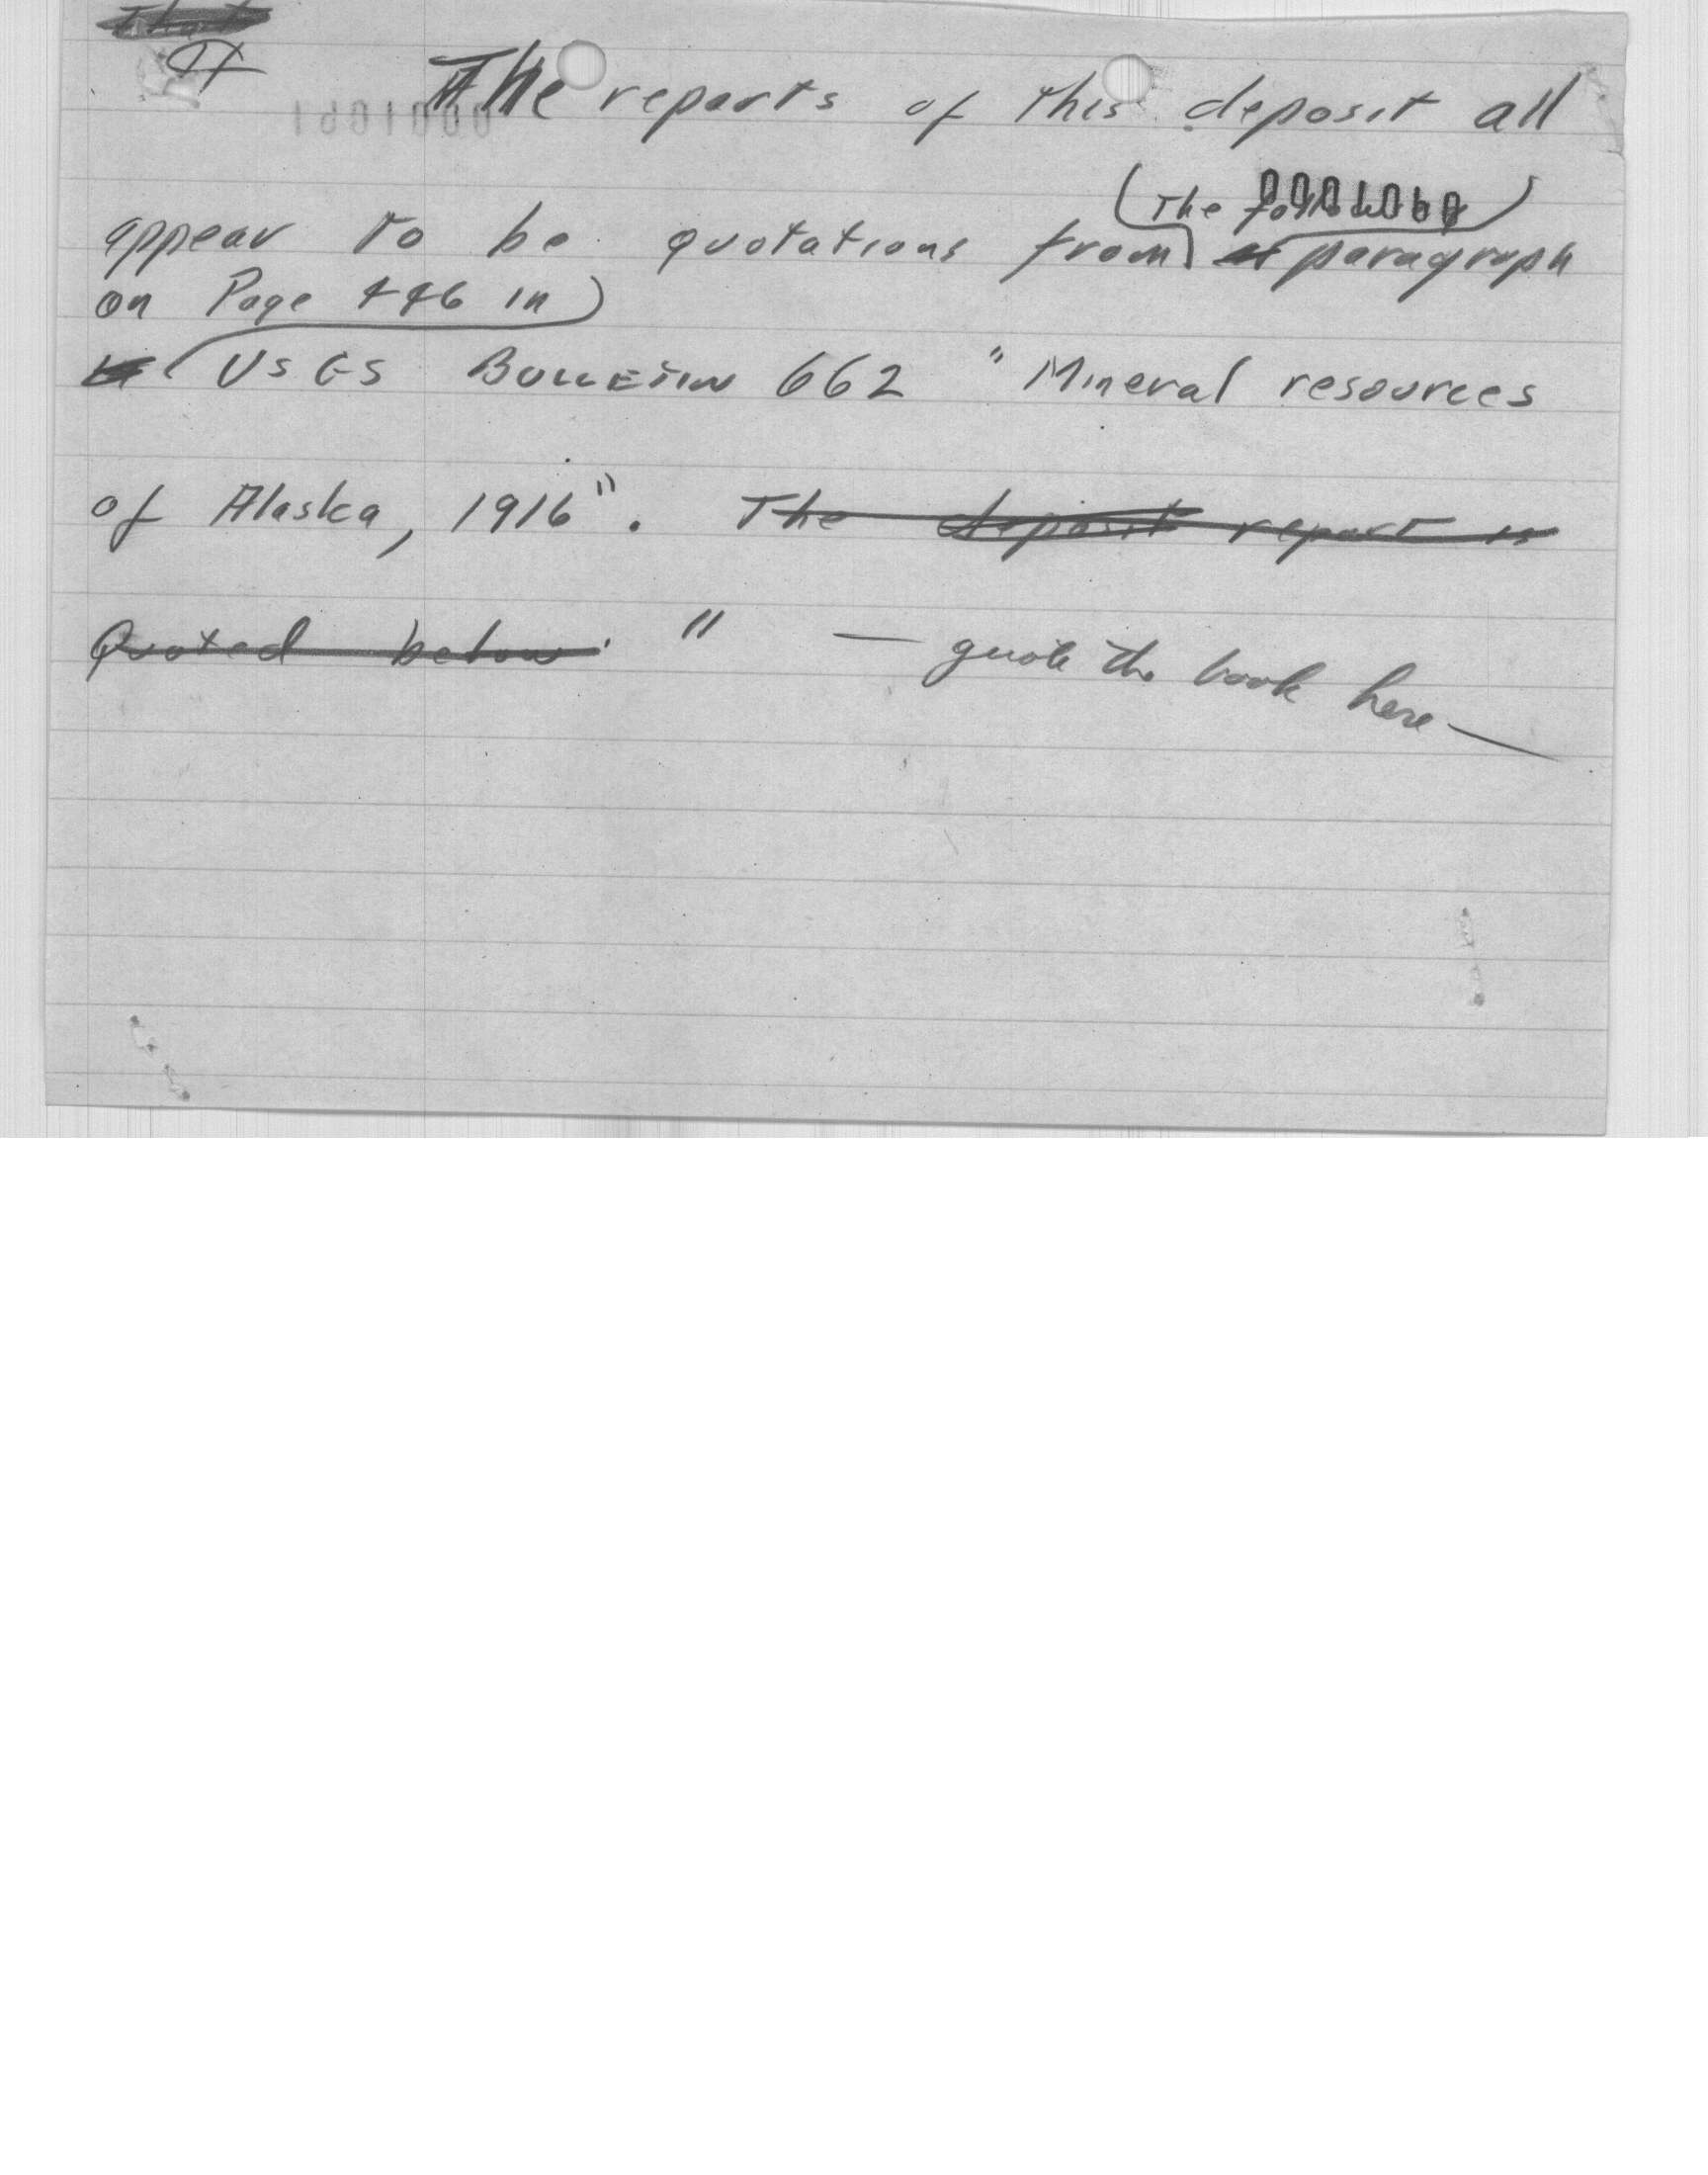 That
¶ The reports of this deposit all
0001061
(The following) 0001060
appear to be quotations from a paragraph
on Page 446 in
in USGS BULLETIN 662 "Mineral resources
of Alaska, 1916". The deposit report is
Quoted below. " — quote the book here —